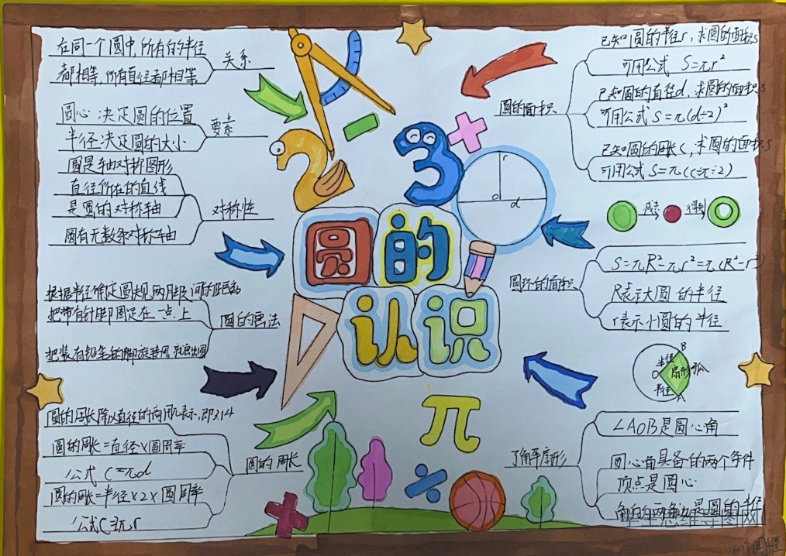 在同一个圆中,所有的半径
都相等,所有直径都相等
关系
圆心:决定圆的位置
半径:决定圆的大小
要素
圆是轴对称图形
直径所在的直线
是圆的对称轴
圆有无数条对称轴
对称性
根据半径确定圆规两脚
把带有针脚固定在一点上
把装有铅笔的脚旋转
圆的画法
圆的周长除以直径的商用π表示,即3.14
圆的周长=直径×圆周率
公式C=πd
圆的周长=半径×2×圆周率
公式C=2πr
圆的周长
2
3
r
o
d
圆的
认识
π
已知圆的半径r,求圆的面积S
可用公式 S=πr²
已知圆的直径d,求圆的面积S
可用公式 S=π(d÷2)²
已知圆的周长C,求圆的面积S
可用公式 S=π(C÷π÷2)²
圆的面积
减去
得到
S=πR²-πr²=π(R²-r²)
R表示大圆的半径
r表示小圆的半径
圆环的面积
B
半径
O
扇形
半径
A
∠AOB是圆心角
圆心角具备的两个条件
顶点是圆心
是圆的半径
了解扇形
思维导图网